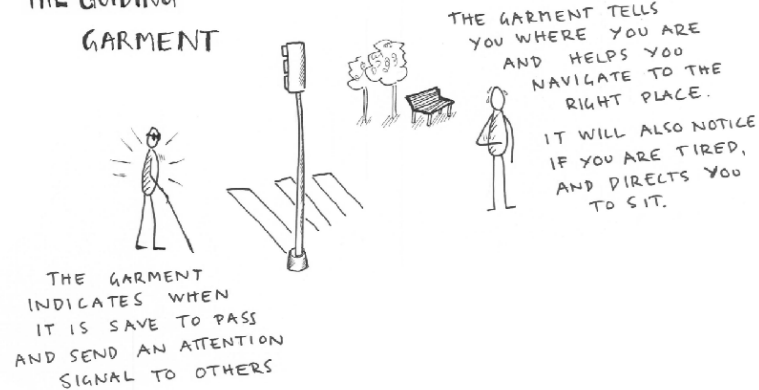 THE GUIDING
GARMENT
THE GARMENT TELLS
YOU WHERE YOU ARE
AND HELPS YOU
NAVIGATE TO THE
RIGHT PLACE.
IT WILL ALSO NOTICE
IF YOU ARE TIRED,
AND DIRECTS YOU
TO SIT.
THE GARMENT
INDICATES WHEN
IT IS SAVE TO PASS
AND SEND AN ATTENTION
SIGNAL TO OTHERS